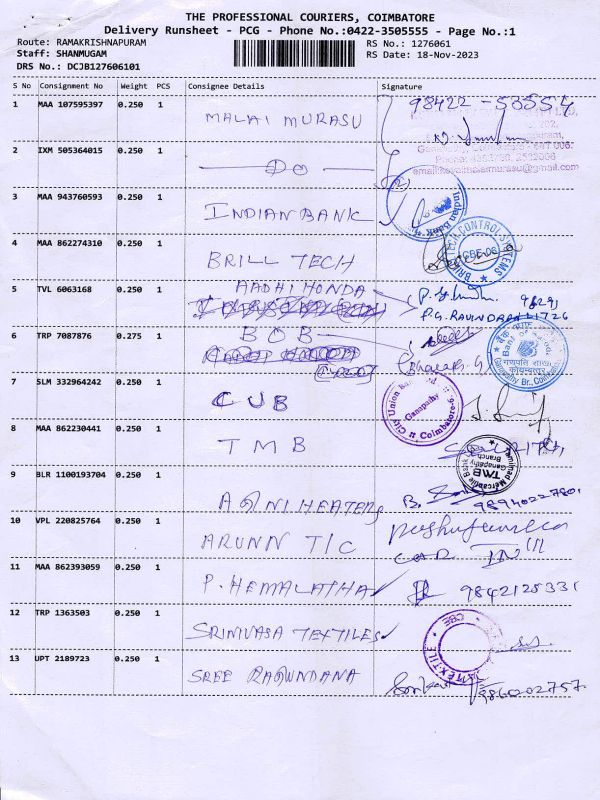 THE PROFESSIONAL COURIERS, COIMBATORE
Delivery Runsheet - PCG - Phone No.:0422-3505555 - Page No.:1
Route: RAMAKRISHNAPURAM RS No.: 1276061
Staff: SHANMUGAM RS Date: 18-Nov-2023
DRS No.: DCJB127606101
S No Consignment No Weight PCS Consignee Details Signature
1 MAA 107595397 0.250 1 MALAI MURASU 98422-53554
2 IXM 505364015 0.250 1 DO
3 MAA 943760593 0.250 1 INDIAN BANK Indian Bank
4 MAA 862274310 0.250 1 BRILL TECH CBE-06
5 TVL 6063168 0.250 1 AADHI HONDA
P.G. RAVINDRAN
6 TRP 7087876 0.275 1 BOB Bharath.G
7 SLM 332964242 0.250 1 CUB City Union Bank Ganapathy Coimbatore-6
8 MAA 862230441 0.250 1 TMB Tamilnad Mercantile Bank TMB Ganapathy Branch
9 BLR 1100193704 0.250 1 AGNI HEATERS 9894022780
10 VPL 220825764 0.250 1 ARUNN TIC
11 MAA 862393059 0.250 1 P. HEMALATHA 9842125331
12 TRP 1363503 0.250 1 SRINIVASA TEXTILES CBE
13 UPT 2189723 0.250 1 SREE RAGUNDANA 9860202757